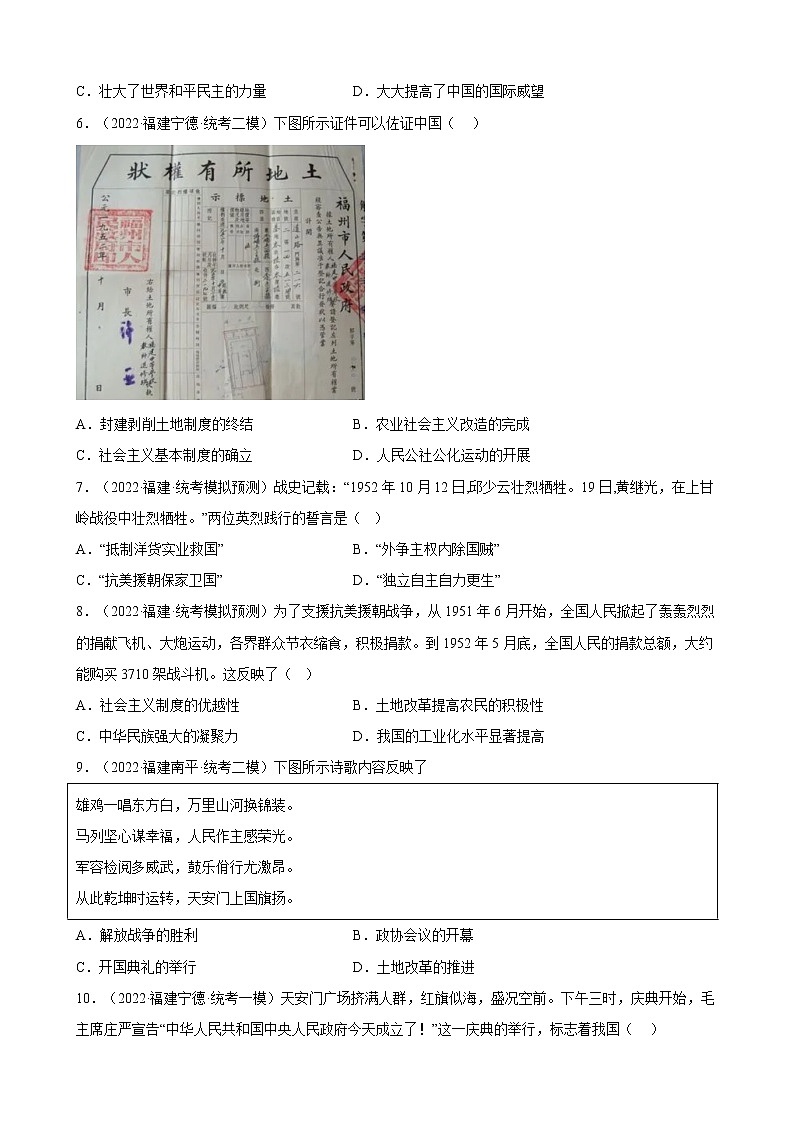 C．壮大了世界和平民主的力量 D．大大提高了中国的国际威望
6．（2022·福建宁德·统考二模）下图所示证件可以佐证中国（ ）
狀權有所地土
示標地土
福州市人民政府
公元一九五二年
十月
日
市長
A．封建剥削土地制度的终结 B．农业社会主义改造的完成
C．社会主义基本制度的确立 D．人民公社公化运动的开展
7．（2022·福建·统考模拟预测）战史记载：“1952年10月12日,邱少云壮烈牺牲。19日,黄继光，在上甘
岭战役中壮烈牺牲。”两位英烈践行的誓言是（ ）
A．“抵制洋货实业救国” B．“外争主权内除国贼”
C．“抗美援朝保家卫国” D．“独立自主自力更生”
8．（2022·福建·统考模拟预测）为了支援抗美援朝战争，从1951年6月开始，全国人民掀起了轰轰烈烈
的捐献飞机、大炮运动，各界群众节衣缩食，积极捐款。到1952年5月底，全国人民的捐款总额，大约
能购买3710架战斗机。这反映了（ ）
A．社会主义制度的优越性 B．土地改革提高农民的积极性
C．中华民族强大的凝聚力 D．我国的工业化水平显著提高
9．（2022·福建南平·统考二模）下图所示诗歌内容反映了
雄鸡一唱东方白，万里山河换锦装。
马列坚心谋幸福，人民作主感荣光。
军容检阅多威武，鼓乐偕行尤激昂。
从此乾坤时运转，天安门上国旗扬。
A．解放战争的胜利 B．政协会议的开幕
C．开国典礼的举行 D．土地改革的推进
10．（2022·福建宁德·统考一模）天安门广场挤满人群，红旗似海，盛况空前。下午三时，庆典开始，毛
主席庄严宣告“中华人民共和国中央人民政府今天成立了！”这一庆典的举行，标志着我国（ ）